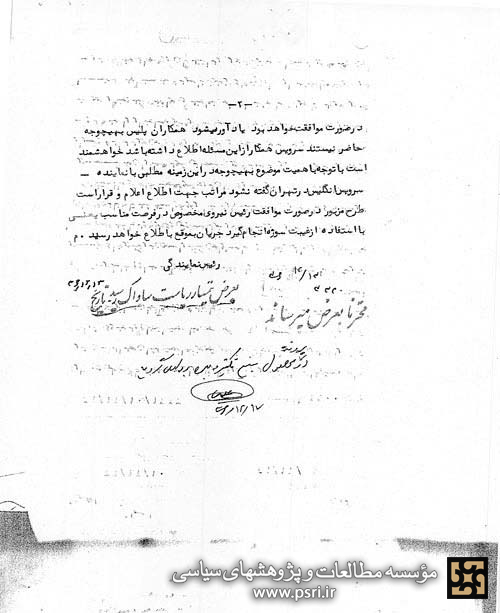 -۲-
در صورت موافقت خواهد بود یادآور میشود همکاران پلیس بهیچوجه
حاضر نیستند سرویس همکار از این مسئله اطلاع داشته باشد خواهشمند
است با توجه با همیت موضوع بهیچوجه در این زمینه مطلبی با نماینده -
سرویس انگلیس در تهران گفته نشود مراتب جهت اطلاع اعلام و قرار است
طرح مزبور در صورت موافقت رئیس نیروی مخصوص در فرصت مناسب یعنی
با استفاده از غیبت سوژه انجام گیرد جریان بموقع باطلاع خواهد رسید . م
رئیس نمایندگی
بعرض تیمسار ریاست ساواک رسید
محترما بعرض میرساند
مؤسسه مطالعات و پژوهشهای سیاسی
www.psri.ir